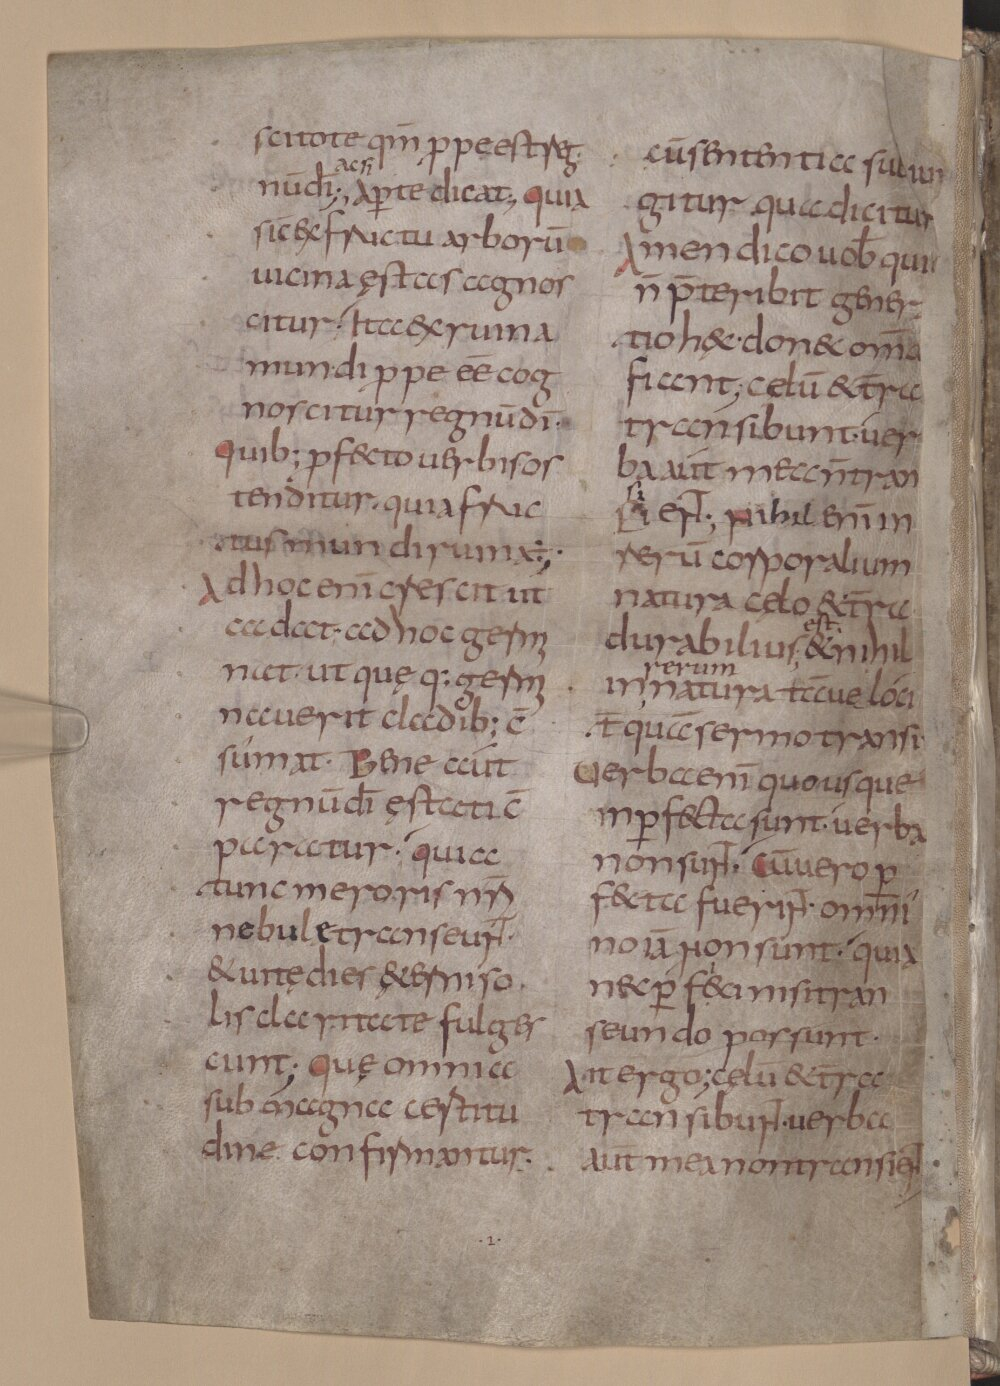 scitote qm̄ ꝓpe est reg
acsi
nū dī; Aꝑte dicat; Quia
sic̄ & fructu arborū
uicina ęstas agnos
citur. Ita & ruina
mundi ꝓpe eē cog
noscitur regnū dī.
Quib; ꝓfecto uerbis os
tenditur. quia fruc
tus mundi ruina ÷;
Ad hoc enī crescit ut
cadat. ad hoc germ
nat. ut quę q; germ
nauerit cladib; c̄
sumat. Bene aut̄
regnū dī ęstati c̄
paratur. quia
tunc meroris nr̄i
nebulę transeunt.
& uitę dies ęterni so
lis claritate fulges
cunt; Quę omnia
sub magna certitu
dine confirmantur.
cū sententia subiun
gitur qua dicitur
Amen dico uob̄ quia
n̄ p̄teribit gener
tio hęc. donec om̄a
fiant; Celū & t̄ra
transibunt. uer
ba aut̄ mea n̄ tran
si
sient; Nihil enī in
rerū corporalium
natura celo & t̄ra
est
durabilius; & nihil
rerum
in natura tā uelóci
t̄ quā sermo transi
Uerba enī quousque
inꝑfecta sunt. uerba
non sunt. Cū uero ꝑ
fecta fuerint. omni
no iā non sunt. quia
nec ꝑfici nisi tran
seundo possunt.
Ait ergo; celū & t̄ra
transibunt. uerba
aut̄ mea non transient.
.1.